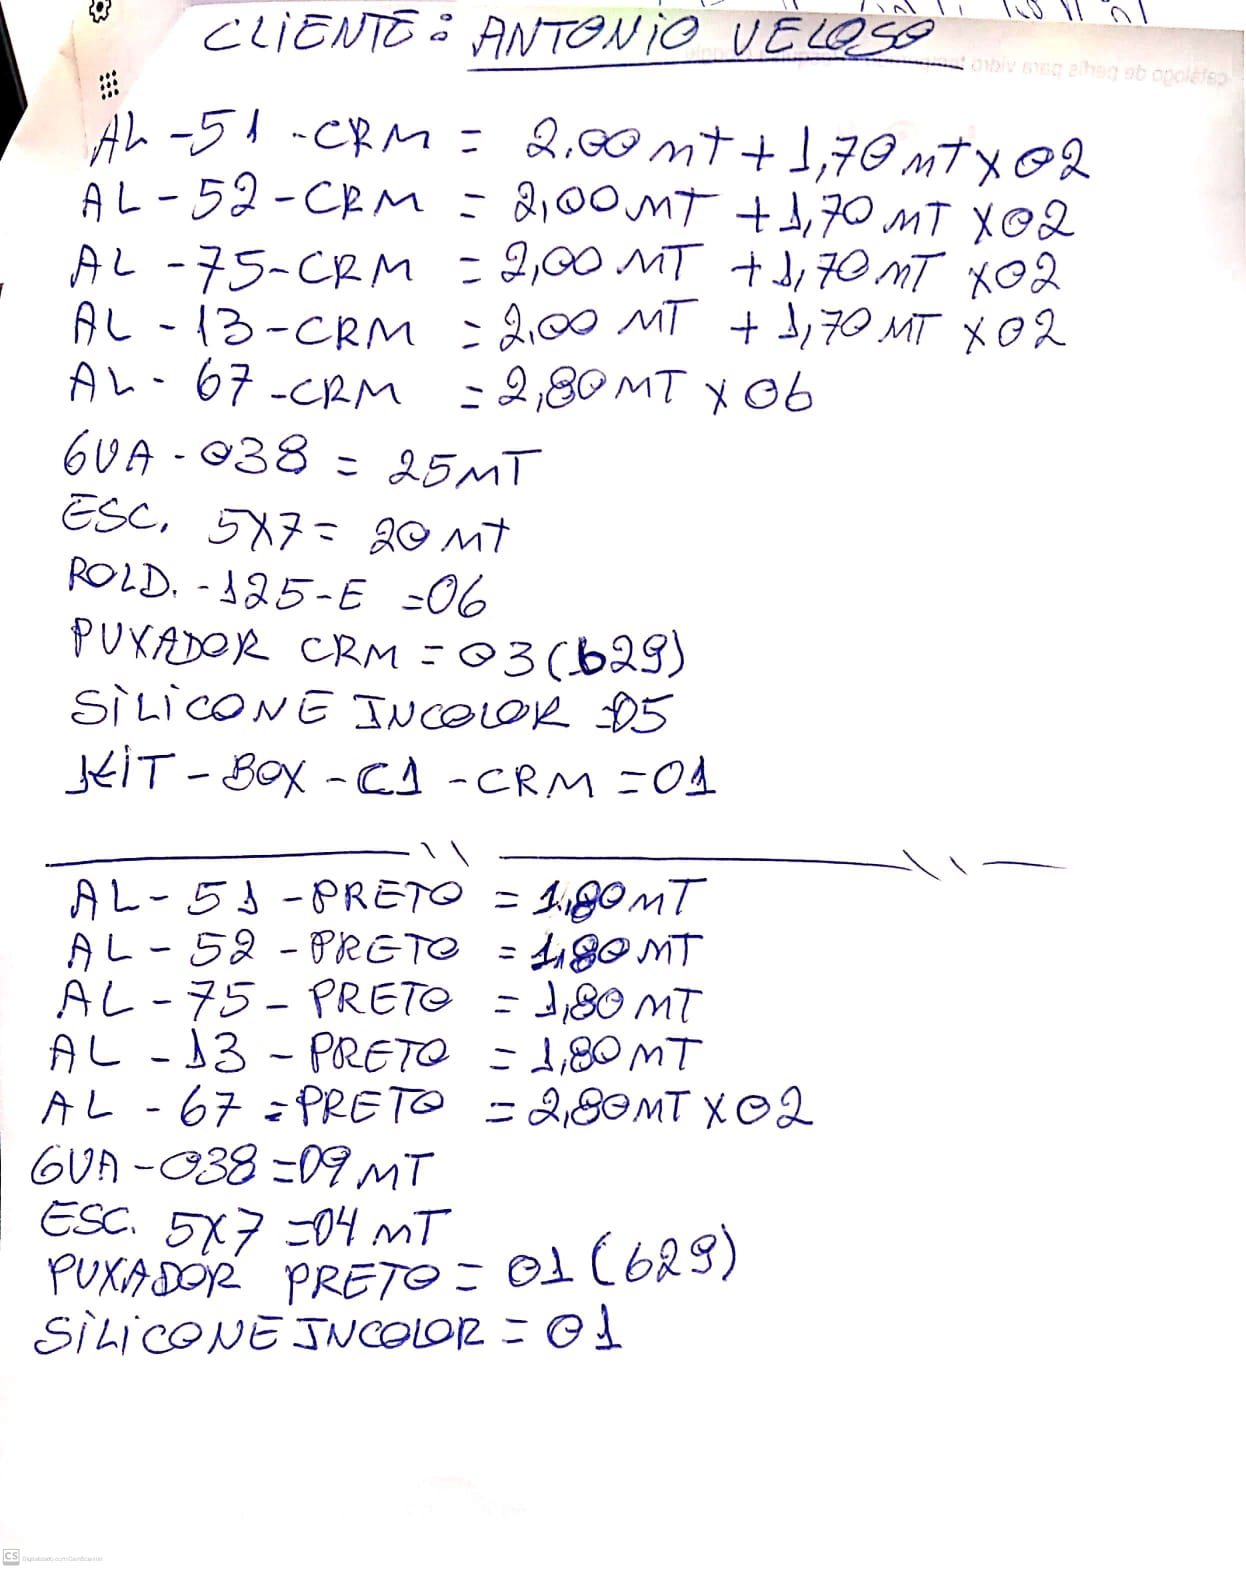 CLIENTE: ANTONIO VELOSO
AL-51-CRM = 2,00 MT + 1,70 MT X 02
AL-52-CRM = 2,00 MT + 1,70 MT X 02
AL-75-CRM = 2,00 MT + 1,70 MT X 02
AL-13-CRM = 2,00 MT + 1,70 MT X 02
AL-67-CRM = 2,80 MT X 06
GUA-038 = 25 MT
ESC. 5X7 = 20 MT
ROLD.-125-E = 06
PUXADOR CRM = 03 (629)
SILICONE INCOLOR = 05
KIT-BOX-C1-CRM = 01
AL-51-PRETO = 1,80 MT
AL-52-PRETO = 1,80 MT
AL-75-PRETO = 1,80 MT
AL-13-PRETO = 1,80 MT
AL-67=PRETO = 2,80 MT X 02
GUA-038 = 09 MT
ESC. 5X7 = 04 MT
PUXADOR PRETO = 01 (629)
SILICONE INCOLOR = 01
CS Digitalizado com CamScanner